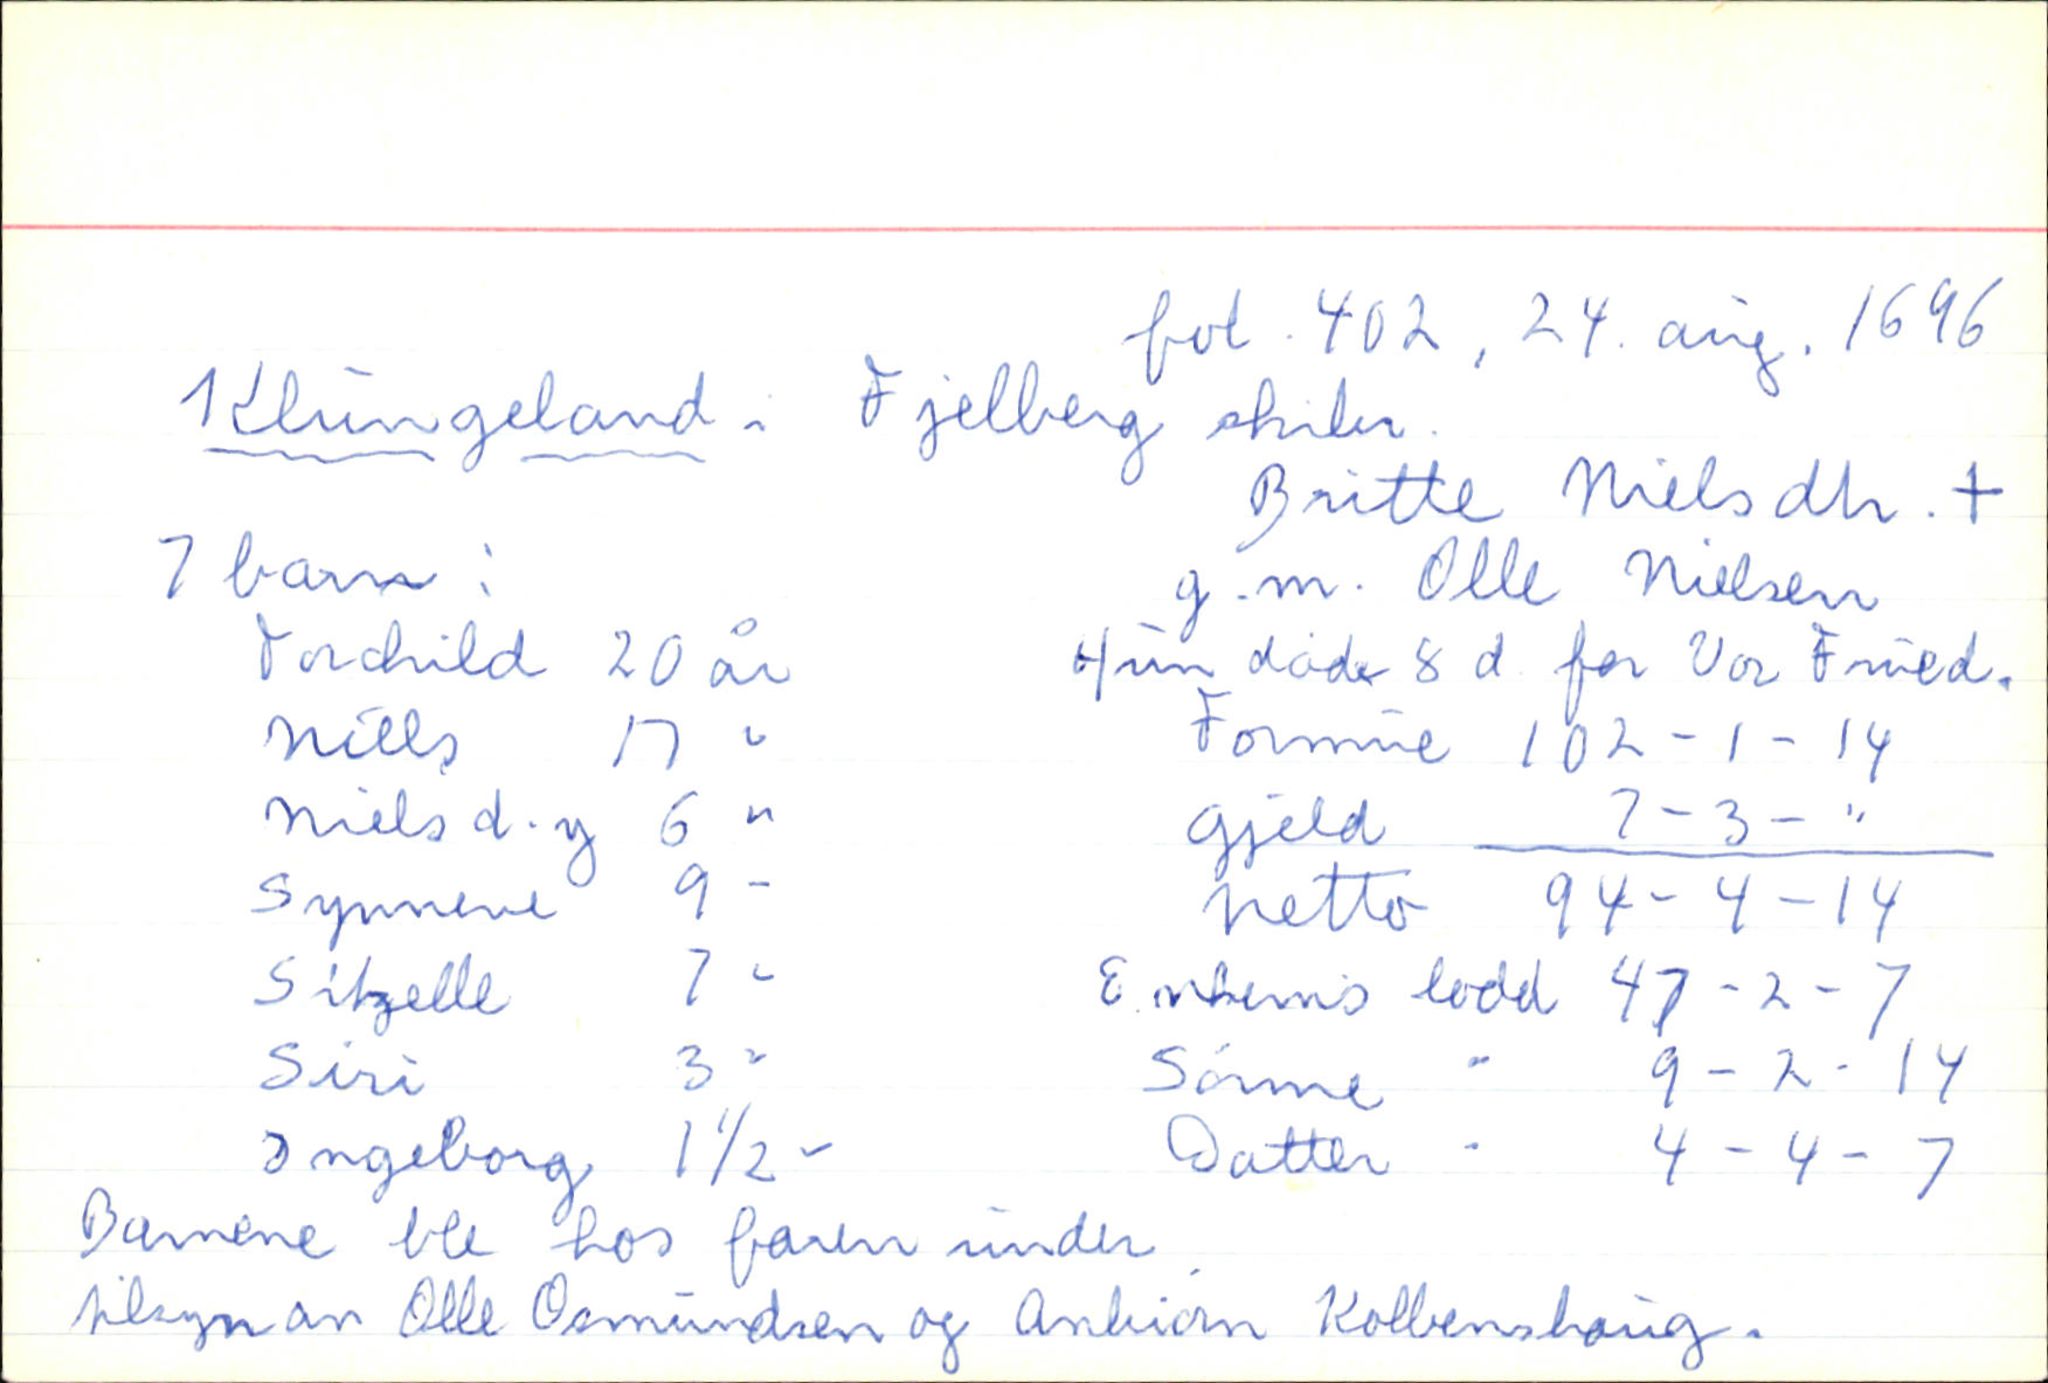 fol. 402, 24. aug. 1696
Klungeland i Fjelberg skibr.
Britte Nielsdtr. +
g.m. Olle Nielsen
Hun døde 8 d. før Vor Frued.
7 barn:
Torchild 20 år
Niels 17 "
Niels d.y 6 "
Synneve 9 -
Sitzelle 7 "
Siri 3 "
Ingeborg 1 1/2 "
Formue 102 - 1 - 14
Gjeld 7 - 3 - "
Netto 94 - 4 - 14
Enkems lodd 47 - 2 - 7
Sønne " 9 - 2 - 14
Datter " 4 - 4 - 7
Barnene ble hos faren under
tilsyn av Olle Osmundsen og Anbiørn Kolbenshaug.